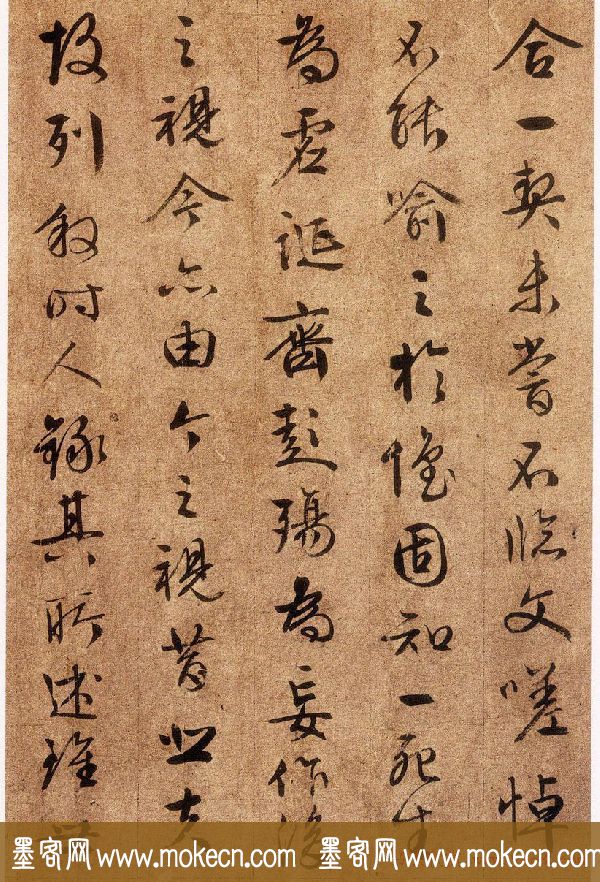 合一契未嘗不臨文嗟悼
不能喻之於懷固知一死生
為虛誕齊彭殤為妄作後
之視今亦由今之視昔悲夫
故列敘時人錄其所述雖
墨客网 www.mokecn.com 墨客网 www.mokecn.com